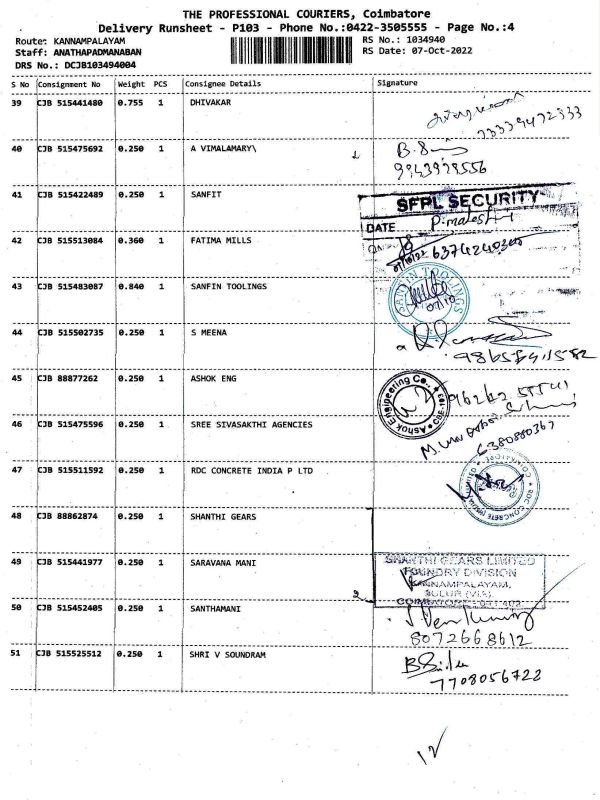 THE PROFESSIONAL COURIERS, Coimbatore
Delivery Runsheet - P103 - Phone No.:0422-3505555 - Page No.:4
Route: KANNAMPALAYAM RS No.: 1034940
Staff: ANATHAPADMANABAN RS Date: 07-Oct-2022
DRS No.: DCJB103494004
S No Consignment No Weight PCS Consignee Details Signature
39 CJB 515441480 0.755 1 DHIVAKAR
40 CJB 515475692 0.250 1 A VIMALAMARY\
9943978556
41 CJB 515422489 0.250 1 SANFIT
SFPL SECURITY
DATE
42 CJB 515513084 0.360 1 FATIMA MILLS
43 CJB 515483087 0.840 1 SANFIN TOOLINGS
44 CJB 515502735 0.250 1 S MEENA
45 CJB 88877262 0.250 1 ASHOK ENG
Ashok Engineering Co.,
46 CJB 515475596 0.250 1 SREE SIVASAKTHI AGENCIES
47 CJB 515511592 0.250 1 RDC CONCRETE INDIA P LTD
48 CJB 88862874 0.250 1 SHANTHI GEARS
49 CJB 515441977 0.250 1 SARAVANA MANI
SHANTHI GEARS LIMITED
FOUNDRY DIVISION
KANNAMPALAYAM,
SULUR (VIA),
50 CJB 515452405 0.250 1 SANTHAMANI
8072668612
51 CJB 515525512 0.250 1 SHRI V SOUNDRAM
7708056722